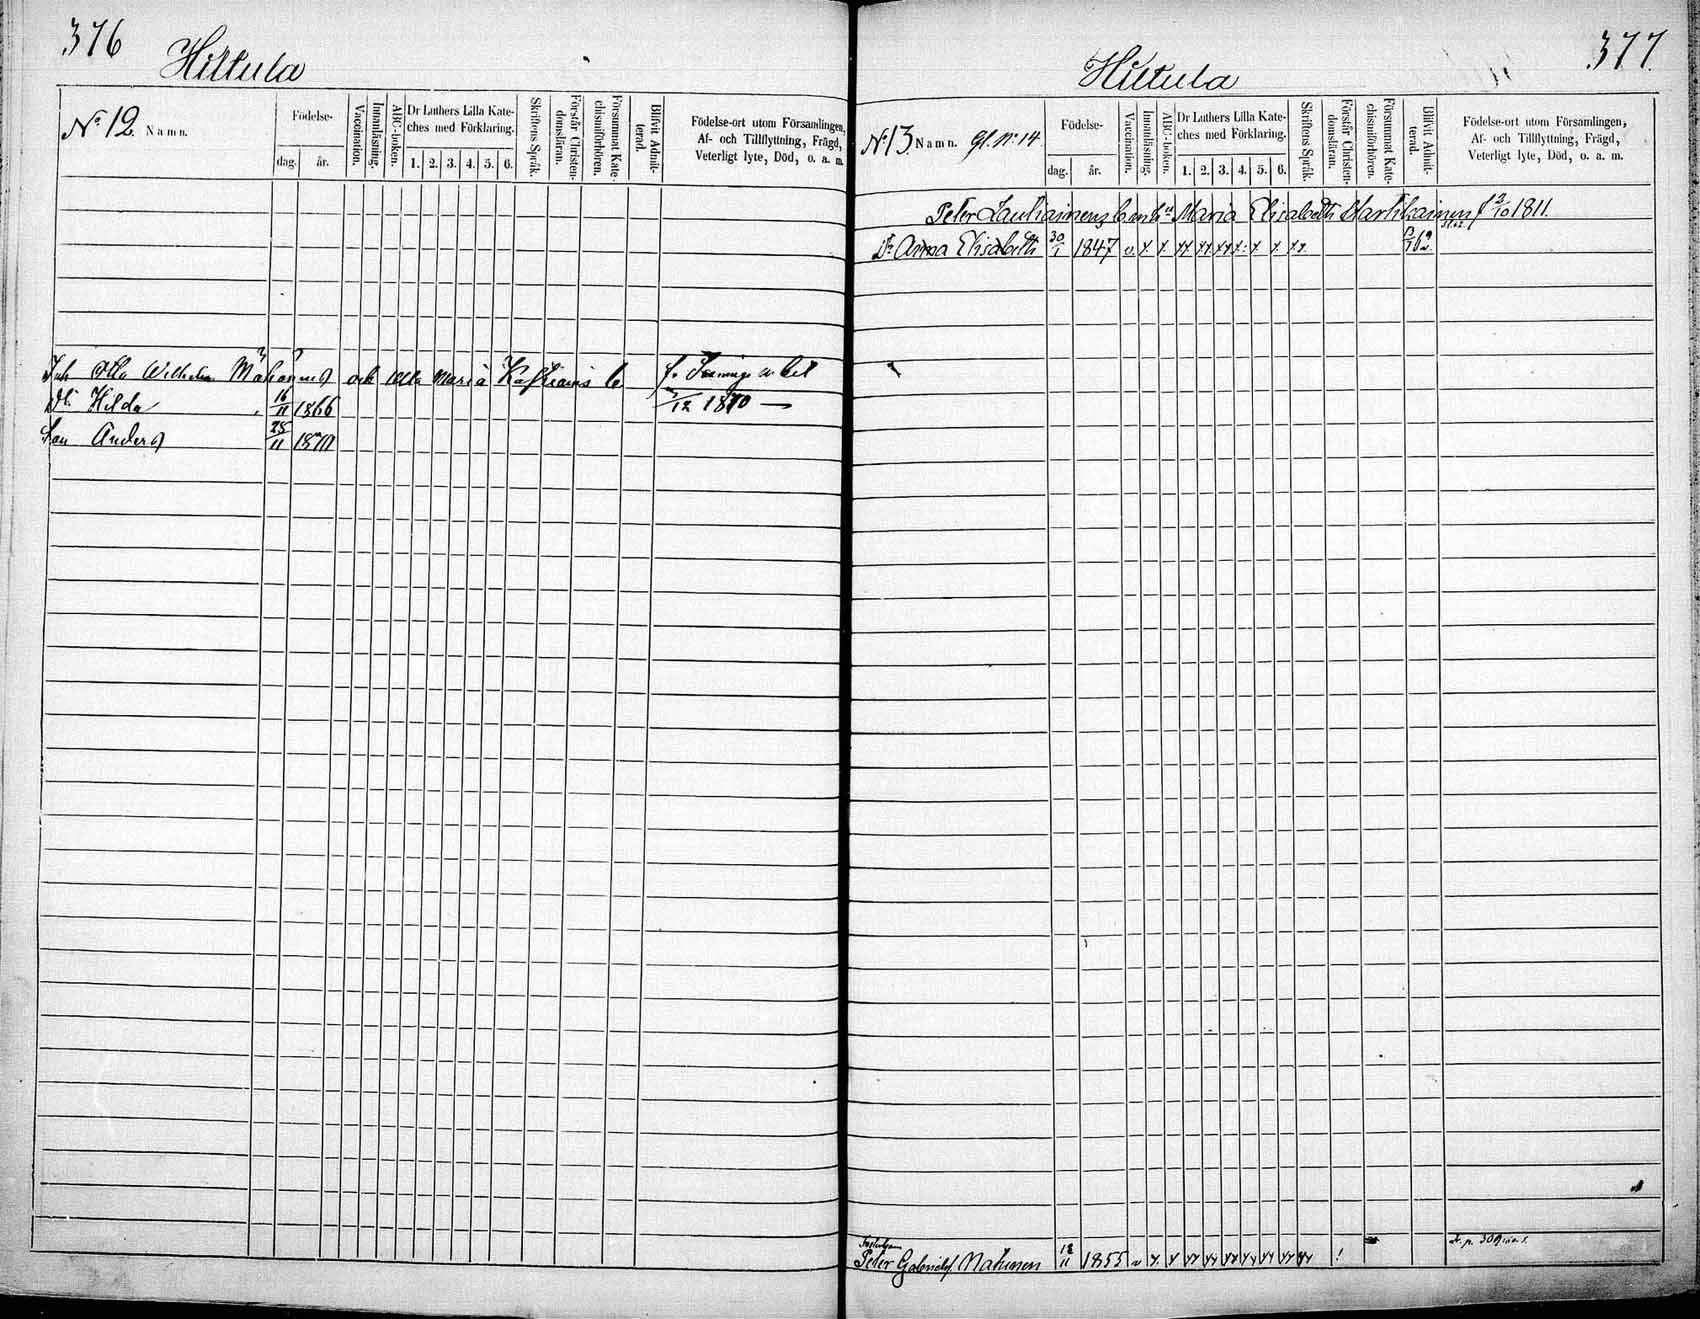 376
Hiltula
Nº 12. Namn.
Födelse-
dag. år.
Vaccination.
Innanläsning.
ABC-boken.
Dr Luthers Lilla Kate-
ches med Förklaring.
1. 2. 3. 4. 5. 6.
Skriftens Språk.
Förstår Christen-
domsläran.
Försummat Kate-
chismiförhören.
Blifvit Admit-
terad.
Födelse-ort utom Församlingen,
Af- och Tillflyttning, Frägd,
Veterligt lyte, Död, o. a. m.
Otto Wilhelm och Ulla Maria
Hilda 16/11 1866
12 1870
Anders 25/11
377.
Hiltula
Nº 13. Namn. Gl. Nº 14
Födelse-
dag. år.
Vaccination.
Innanläsning.
ABC-boken.
Dr Luthers Lilla Kate-
ches med Förklaring.
1. 2. 3. 4. 5. 6.
Skriftens Språk.
Förstår Christen-
domsläran.
Försummat Kate-
chismiförhören.
Blifvit Admit-
terad.
Födelse-ort utom Församlingen,
Af- och Tillflyttning, Frägd,
Veterligt lyte, Död, o. a. m.
Peter Lauhainens Maria Elisabeth f 2/10 1811.
Dr Anna Elisabeth 30/1 1847 v. x x xx xx xx x x x xx
Peter 12/11 1855